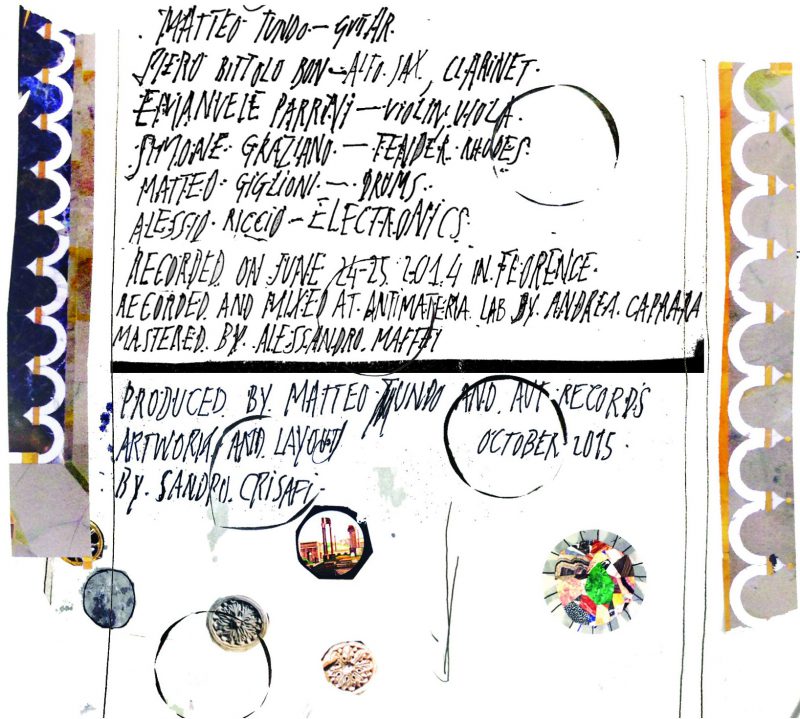 . MATTEO TUNDO — GUITAR.
PIERO BITTOLO BON — ALTO. SAX, CLARINET.
EMANUELE PARRINI — VIOLIN. VIOLA.
SIMONE GRAZIANO. — FENDER. RHODES.
MATTEO GIGLIONI. — DRUMS.
ALESSIO. RICCIO — ELECTRONICS.
RECORDED ON JUNE 24-25 2014 IN FLORENCE.
RECORDED AND MIXED AT. ANTIMATERIA. LAB BY. ANDREA. CAPRARA
MASTERED. BY. ALESSANDRO. MAFFEI
PRODUCED BY MATTEO TUNDO AND AUT RECORDS
ARTWORK AND. LAYOUT
BY. SANDRO. CRISAFI.
OCTOBER 2015.